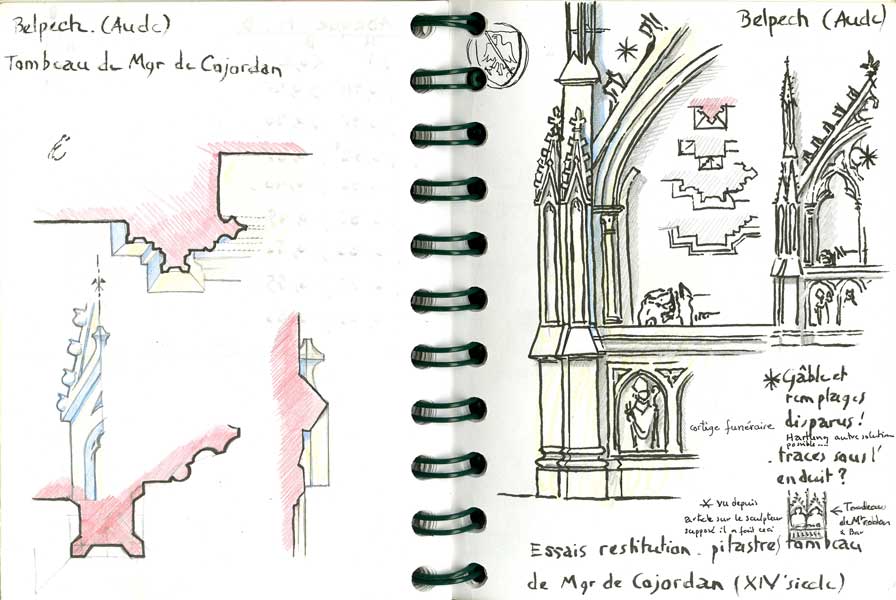 Belpech. (Aude)
Tombeau de Mgr de Cojordan
Belpech (Aude)
* Gâble et
remplages
disparus!
Hartung autre solution
possible...
. traces sous l'
enduit?
cortège funéraire
* vu depuis
article sur le sculpteur
supposé il a fait ceci
← Tombeau
de
à Bar
Essais restitution. pilastres tombeau
de Mgr de Cojordan (XIV° siècle)